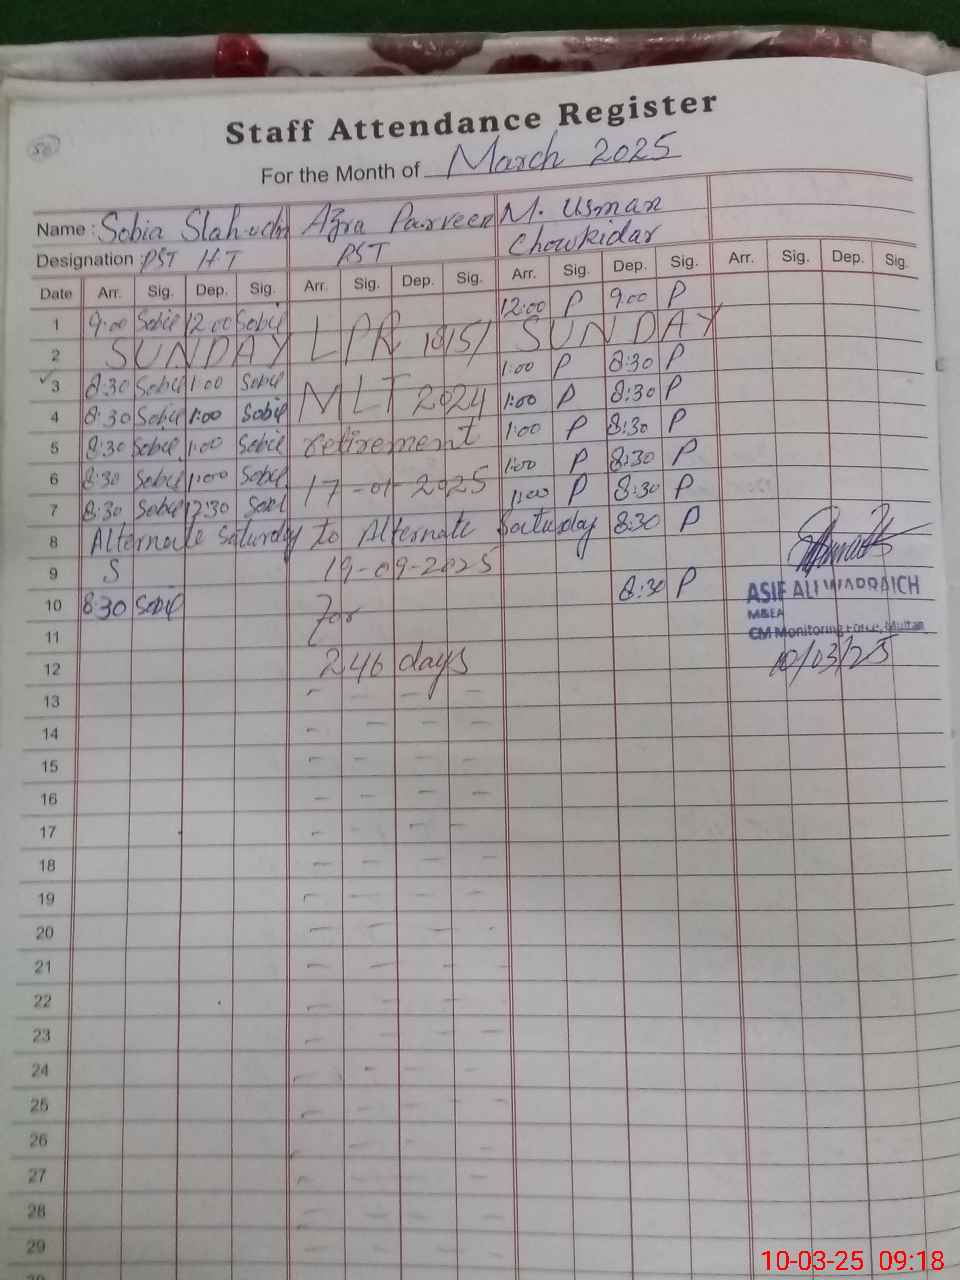 50
Staff Attendance Register
For the Month of March 2025
Name : Sobia Slahudin Azra Parveen M. Usman
Designation : PST H.T PST Chowkidar
Date Arr. Sig. Dep. Sig. Arr. Sig. Dep. Sig. Arr. Sig. Dep. Sig. Arr. Sig. Dep. Sig.
1 9:00 Sobia 12:00 Sobia 12:00 P 9:00 P
2 SUNDAY LPR SUNDAY
3 8:30 Sobia 1:00 Sobia 1:00 P 8:30 P
4 8:30 Sobia 1:00 Sobia MLT 2024 1:00 P 8:30 P
5 8:30 Sobia 1:00 Sobia retirement 1:00 P 8:30 P
6 8:30 Sobia 1:00 Sobia 17-01-2025 1:00 P 8:30 P
7 8:30 Sobia 12:30 Sobia 1:00 P 8:30 P
8 Alternate Saturday to Alternate Saturday 8:30 P
9 S 19-09-2025
10 8:30 Sobia For 8:30 P
11
12 246 days
13
14
15
16
17
18
19
20
21
22
23
24
25
26
27
28
29
ASIF ALI WARRAICH
M&EA
CM Monitoring Force, Multan
10/03/25
10-03-25 09:18